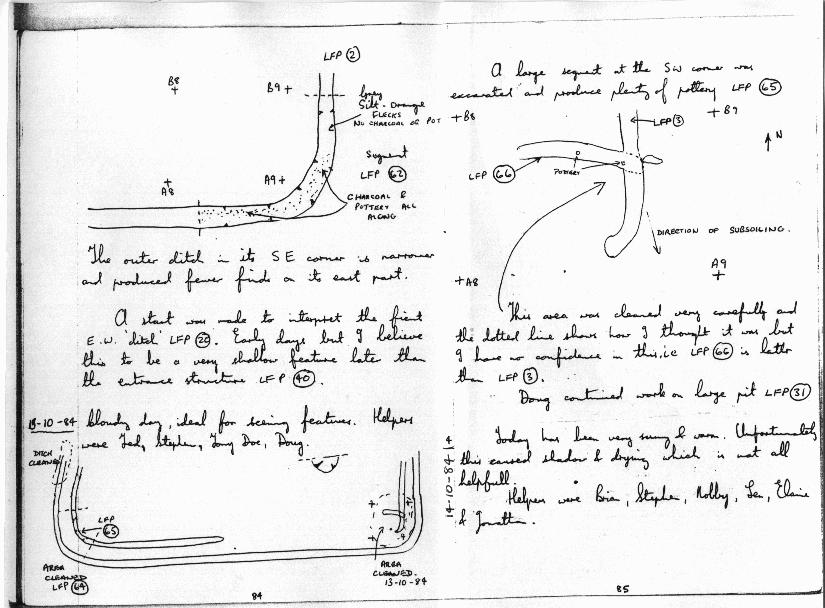 LFP 2
B8
B9 +
Grey
Silt - Orange
FLECKS
NO CHARCOAL OR POT
Segment
LFP 62
A8
A9 +
CHARCOAL &
POTTERY ALL
ALONG
The outer ditch in its SE corner is narrower
and produced fewer finds on its east part.
A start was made to interpret the
E.W. 'ditch' LFP 22. Early days but I believe
this to be a very shallow feature late than
the entrance structure LFP 40.
13-10-84 Cloudy day, ideal for seeing features. Helpers
were Ted, Stephen, Tony Doe, Doug.
DITCH
CLEANED
LFP
63
AREA
CLEANED
LFP 64
AREA
CLEANED.
13-10-84
84
A large segment at the SW corner was
excavated and produce plenty of pottery LFP 65
+ B8
LFP 3
+ B9
N
LFP 66
POTTERY
DIRECTION OF SUBSOILING.
A9
+ A8
This area was cleaned very carefully and
the dotted line shows how I thought it was but
I have no confidence in this, ie LFP 66 is latter
than LFP 3.
Doug continued work on large pit LFP 31
14-10-84
Today has been very sunny & warm. Unfortunately
this caused shadow & drying which is not all
helpfull.
Helpers were Brian, Stephen, Nobby, Len, Elaine
& Jonathan.
85